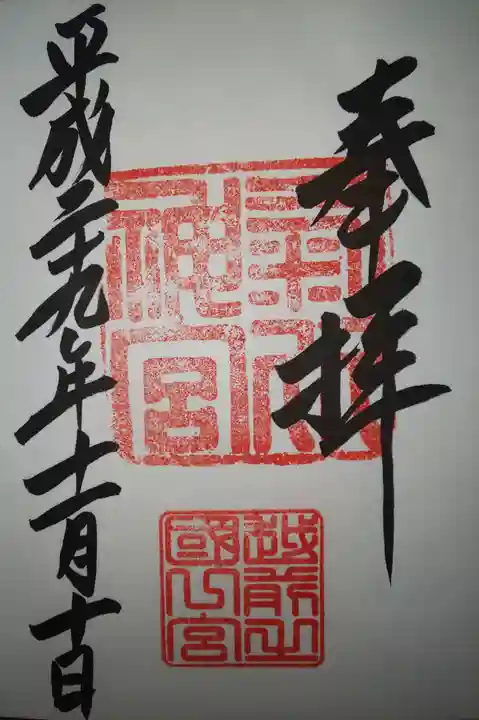 奉拝
氣比
神宮
越前之
國一宮
平成二十九年十一月十日